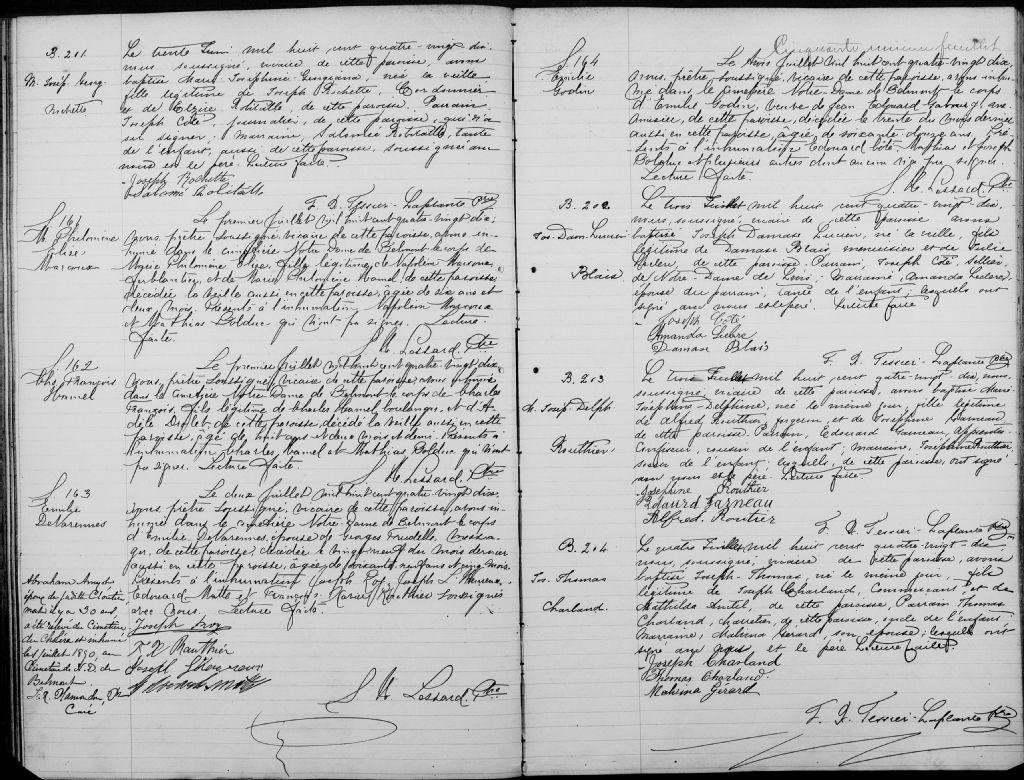 B. 201.
M. Josep. Georg.
Rochette
Le trente Juin mil huit cent quatre-vingt dix,
nous soussigné, vicaire de cette paroisse, avons
baptisé Marie Joséphine Georgiana, née la veille,
fille légitime de Joseph Rochette, Cordonnier
et de Elzire Robitaille, de cette paroisse. Parrain,
Joseph Côté, journalier, de cette paroisse, qui n'a
su signer, Marraine, Salomée Robitaille, tante
de l'enfant, aussi de cette paroisse, soussignée avec
nous et le père. Lecture faite.
Joseph Rochette
Salomé Robitaille
F. X. Tessier-Laplante Ptre
S. 161
M. Philomène
Marcoux
Le premier Juillet mil huit cent quatre-vingt-dix,
nous, prêtre, soussigné, vicaire de cette paroisse, avons in-
humé dans le cimetière Notre-Dame de Belmont le corps de
Philomène fille légitime de Napoléon Marcoux,
ferblantier, et de Hamel, de cette paroisse,
décédée la veille aussi en cette paroisse, âgée de six ans et
deux mois. Présents à l'inhumation Napoléon Marcoux
et Mathias Bolduc qui n'ont pu signer. Lecture
faite.
S. H. Lessard, Ptre
S. 162
Chs. François
Hamel
Le premier Juillet mil huit cent quatre-vingt-dix,
nous, prêtre soussigné, vicaire de cette paroisse, avons inhumé
dans le cimetière Notre-Dame de Belmont le corps de Charles
François, fils légitime de Charles Hamel, boulanger, et d'A-
dèle Drolet, de cette paroisse, décédé la veille aussi en cette
paroisse, âgé de huit ans et deux mois et demi. Présents à
l'inhumation Charles Hamel et Mathias Bolduc qui n'ont
pu signer. Lecture faite.
S. H. Lessard, Ptre
S. 163
Emilie
DeVarennes
Le deux Juillet mil huit cent quatre-vingt-dix,
nous, prêtre soussigné, vicaire de cette paroisse, avons in-
humé dans le cimetière Notre-Dame de Belmont le corps
d'Emilie DeVarennes, épouse de Georges Trudelle, messa-
ger, de cette paroisse, décédée le vingt-neuf du mois dernier
aussi en cette paroisse, âgée de soixante neuf ans et onze mois.
Présents à l'inhumation Jacob Roy, Joseph L'Heureux,
Edouard Matte et François-Xavier Routhier soussignés
avec nous. Lecture faite.
Joseph Roy
F. X Routhier
Joseph L'heureux
Edouard Matte
S. H. Lessard, Ptre
Abraham Amyot
époux de Judith Cloutier
mort il y a 30 ans,
a été relevé du Cimetière
du Choléra et inhumé
le 1 Juillet 1890, au
Cimetière de N. D. de
Belmont.
Ptre
Curé
Cinquante unième feuillet
S. 164
Emilie
Godin
Le trois Juillet mil huit cent quatre-vingt dix,
nous, prêtre, soussigné, vicaire de cette paroisse, avons inhu-
mé dans le cimetière Notre-Dame de Belmont le corps
d'Emilie Godin, veuve de Jean Edouard Gaboury, me-
nuisier, de cette paroisse, décédée le trente du mois dernier
aussi en cette paroisse, âgée de soixante-douze ans. Pré-
sents à l'inhumation Edouard Côté, Mathias et Joseph
Bolduc et plusieurs autres dont aucun n'a pu signer.
Lecture faite.
S. H. Lessard, Ptre
B. 202.
Jos. Dam. Lucien
Blais
Le trois Juillet mil huit cent quatre-vingt-dix,
nous, soussigné, vicaire de cette paroisse avons
baptisé Joseph Damase Lucien, né la veille, fils
légitime de Damase Blais, menuisier et de Julie
Leclerc, de cette paroisse. Parrain, Joseph Côté, sellier,
de Notre Dame de Lévis, Marraine, Amanda Leclerc,
épouse du parrain, tante de l'enfant, lesquels ont
signé avec nous et le père. Lecture faite.
Joseph Côté
Amanda Leclerc
Damase Blais
F. X. Tessier-Laplante Ptre
B. 203
M. Josep. Delph.
Routhier
Le trois Juillet mil huit cent quatre-vingt-dix, nous,
soussigné, vicaire de cette paroisse, avons baptisé Marie
Joséphine-Delphine, née le même jour, fille légitime
de Alfred Routhier, et de Joséphine Garneau,
de cette paroisse. Parrain, Edouard Garneau, apprenti-
confiseur, cousin de l'enfant; marraine, Joséphine Routhier,
soeur de l'enfant, lesquels, de cette paroisse, ont signé
avec nous et le père. Lecture faite.
Josephine Routhier
Edouard Garneau
Alfred. Routier
F. X. Tessier-Laplante Ptre
B. 204
Jos. Thomas
Charland.
Le quatre Juillet mil huit cent quatre-vingt-dix
nous, soussigné, vicaire de cette paroisse, avons
baptisé Joseph-Thomas, né le même jour, fils
légitime de Joseph Charland, Commerçant, et de
Mathilda de cette paroisse, Parrain, Thomas
Charland, charretier, de cette paroisse, oncle de l'enfant,
Marraine, Malvina Gérard, son épouse, lesquels ont
signé avec nous, et le père. Lecture faite.
Joseph Charland
Thomas Charland
Malvina Gérard
F. X. Tessier-Laplante Ptre